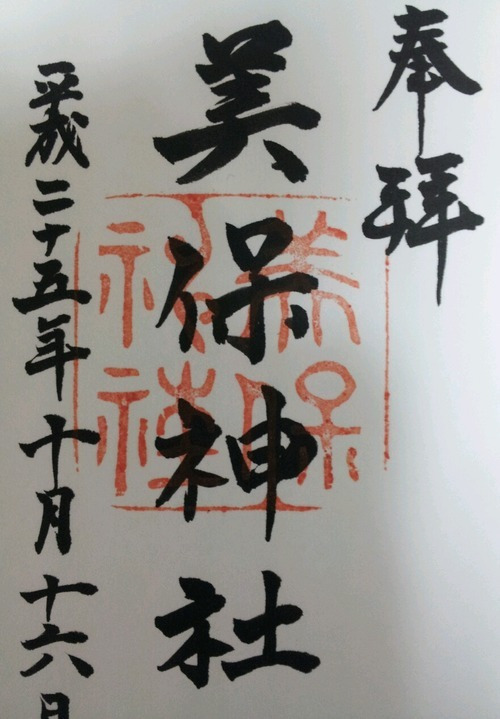 奉拝
美保神社
美保神社
平成二十五年十月十六日